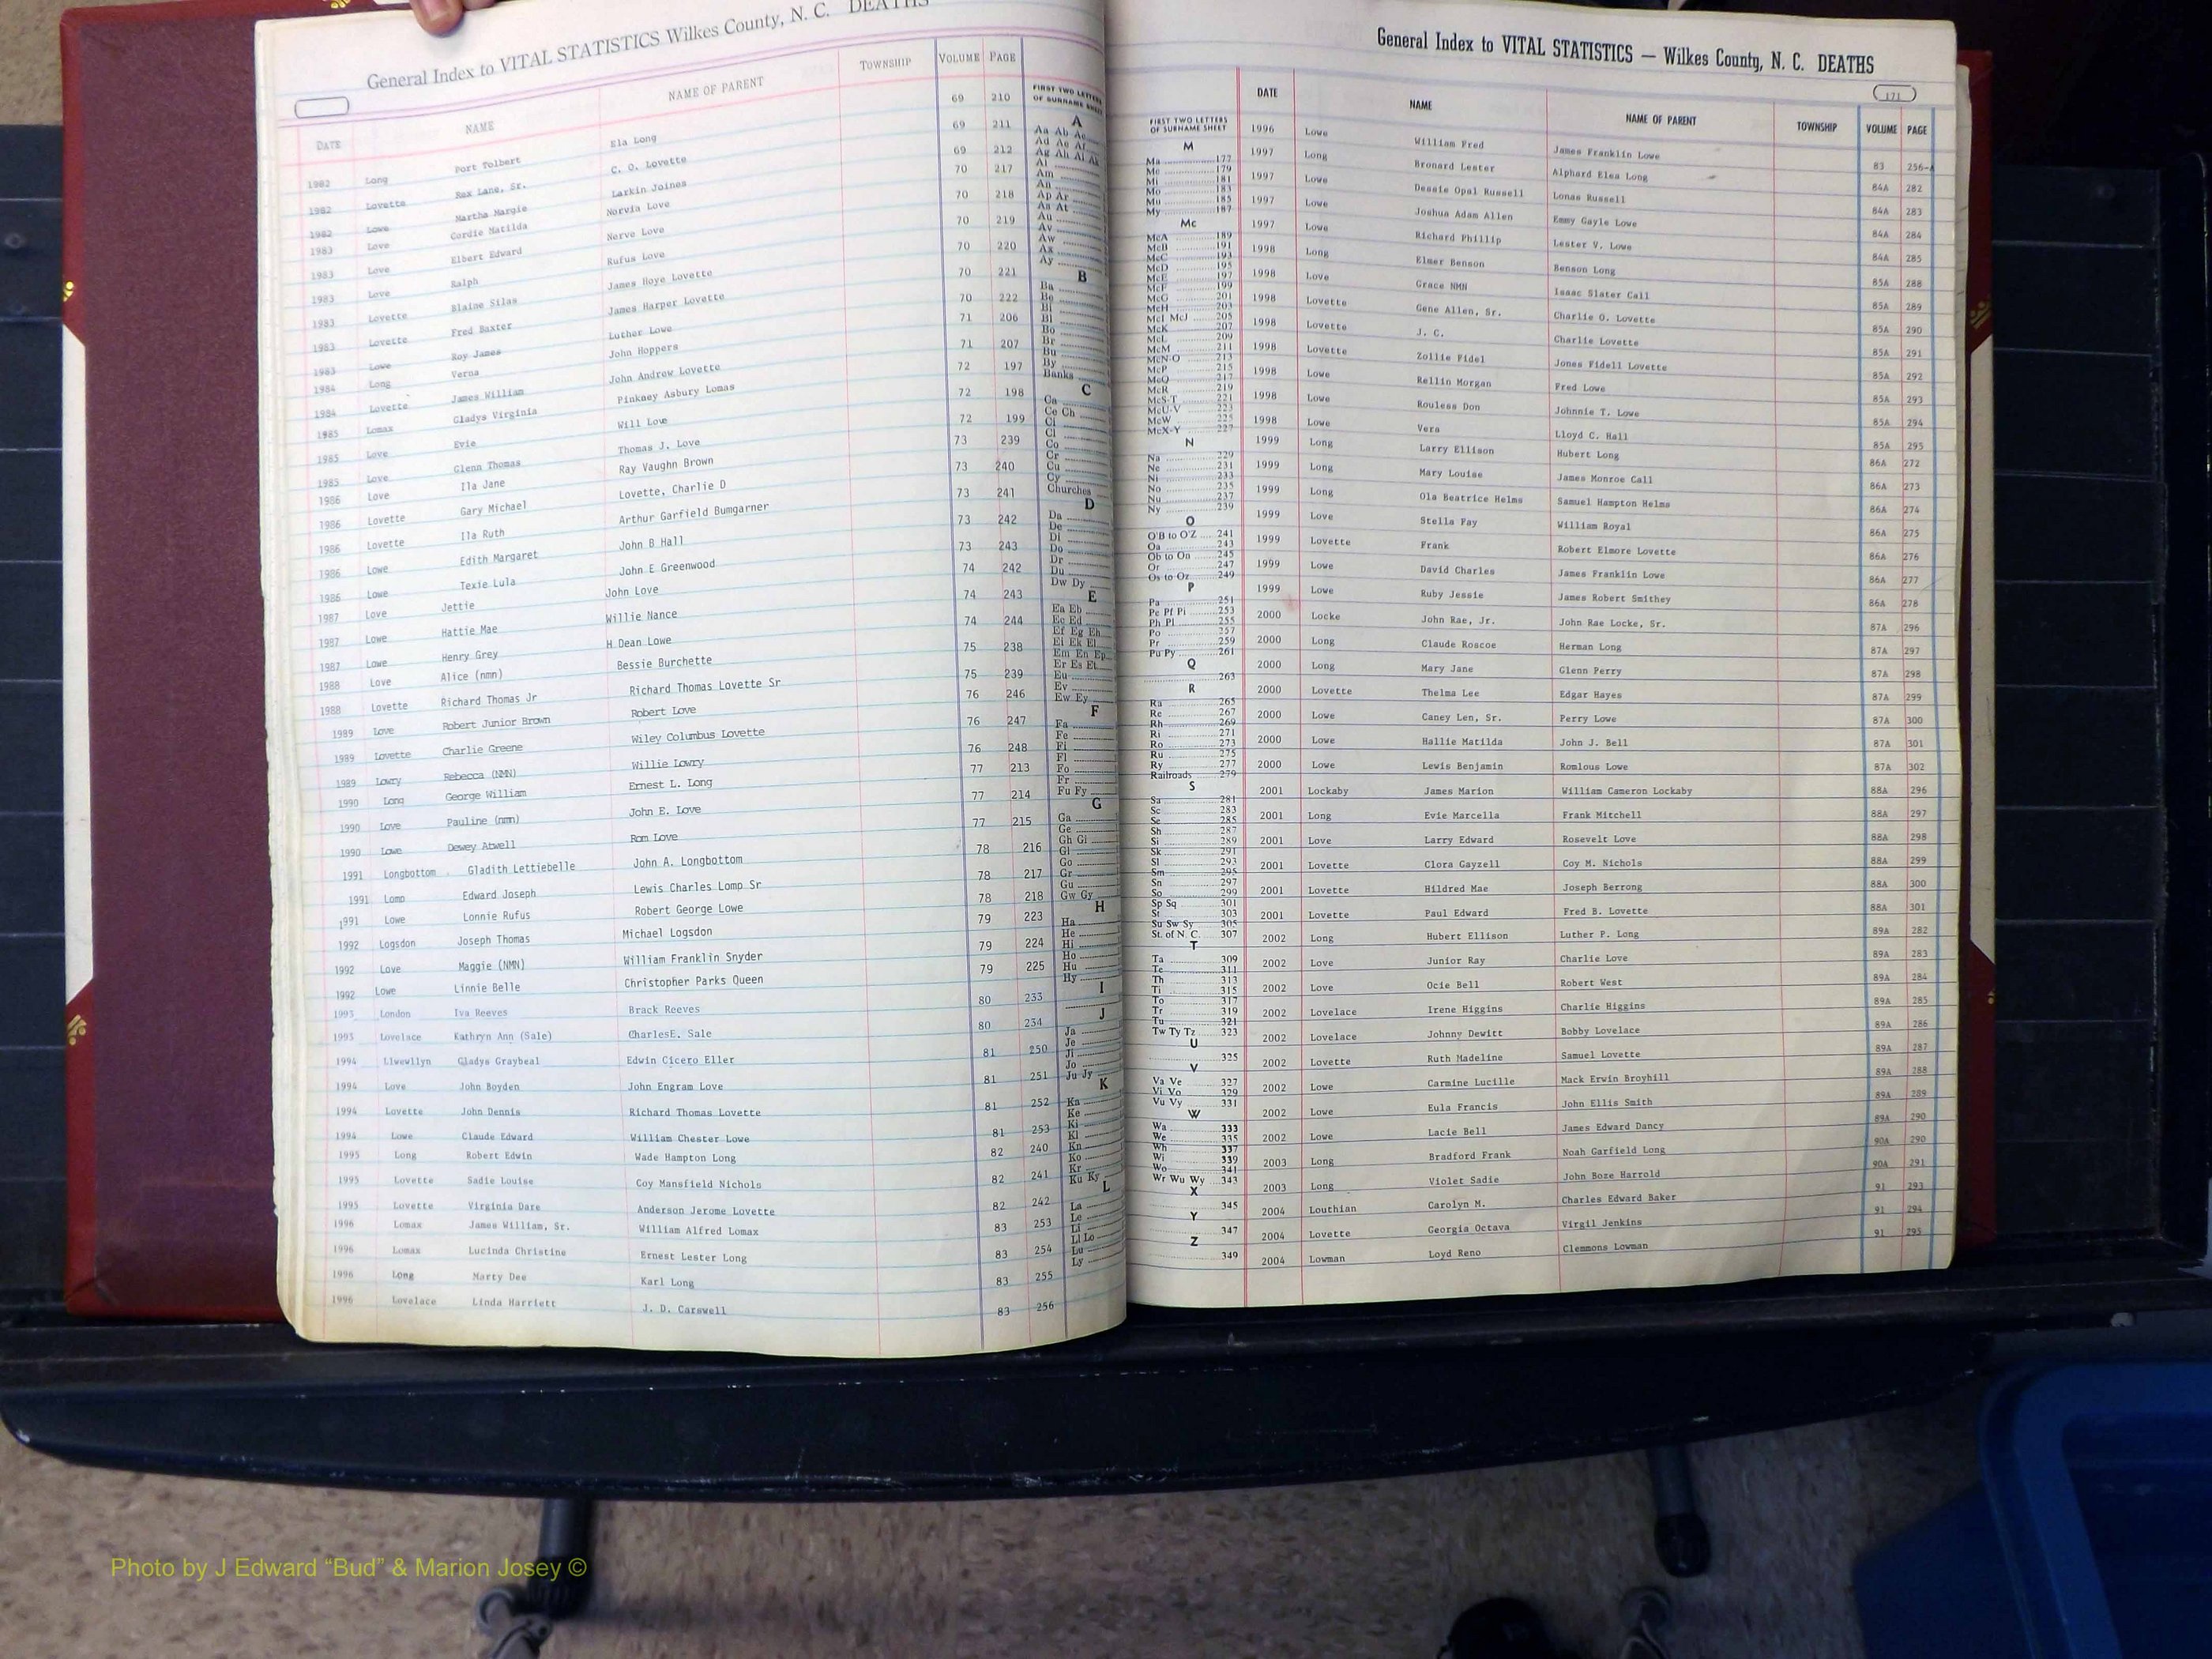 General Index to VITAL STATISTICS Wilkes County, N. C. DEATHS
DATE NAME NAME OF PARENT TOWNSHIP VOLUME PAGE
1982 Long Port Tolbert Ela Long 69 210
1982 Lovette Rex Lane, Sr. C. O. Lovette 69 211
1982 Lowe Martha Margie Larkin Joines 69 212
1983 Love Cordie Matilda Norvia Love 70 217
1983 Love Elbert Edward Nerve Love 70 218
1983 Love Ralph Rufus Love 70 219
1983 Lovette Blaine Silas James Hoye Lovette 70 220
1983 Lovette Fred Baxter James Harper Lovette 70 221
1983 Lowe Roy James Luther Lowe 70 222
1984 Long Verna John Hoppers 71 206
1984 Lovette James William John Andrew Lovette 71 207
1985 Lomax Gladys Virginia Pinkney Asbury Lomas 72 197
1985 Love Evie Will Love 72 198
1985 Love Glenn Thomas Thomas J. Love 72 199
1986 Love Ila Jane Ray Vaughn Brown 73 239
1986 Lovette Gary Michael Lovette, Charlie D 73 240
1986 Lovette Ila Ruth Arthur Garfield Bumgarner 73 241
1986 Lowe Edith Margaret John B Hall 73 242
1986 Lowe Texie Lula John E Greenwood 73 243
1987 Love Jettie John Love 74 242
1987 Lowe Hattie Mae Willie Nance 74 243
1987 Lowe Henry Grey H Dean Lowe 74 244
1988 Love Alice (nmn) Bessie Burchette 75 238
1988 Lovette Richard Thomas Jr Richard Thomas Lovette Sr 75 239
1989 Love Robert Junior Brown Robert Love 76 246
1989 Lovette Charlie Greene Wiley Columbus Lovette 76 247
1989 Lowry Rebecca (NMN) Willie Lowry 76 248
1990 Long George William Ernest L. Long 77 213
1990 Love Pauline (nmn) John E. Love 77 214
1990 Lowe Dewey Atwell Rom Love 77 215
1991 Longbottom Gladith Lettiebelle John A. Longbottom 78 216
1991 Lomp Edward Joseph Lewis Charles Lomp Sr 78 217
1991 Lowe Lonnie Rufus Robert George Lowe 78 218
1992 Logsdon Joseph Thomas Michael Logsdon 79 223
1992 Love Maggie (NMN) William Franklin Snyder 79 224
1992 Lowe Linnie Belle Christopher Parks Queen 79 225
1993 London Iva Reeves Brack Reeves 80 233
1993 Lovelace Kathryn Ann (Sale) CharlesE. Sale 80 234
1994 Llwewllyn Gladys Graybeal Edwin Cicero Eller 81 250
1994 Love John Boyden John Engram Love 81 251
1994 Lovette John Dennis Richard Thomas Lovette 81 252
1994 Lowe Claude Edward William Chester Lowe 81 253
1995 Long Robert Edwin Wade Hampton Long 82 240
1995 Lovette Sadie Louise Coy Mansfield Nichols 82 241
1995 Lovette Virginia Dare Anderson Jerome Lovette 82 242
1996 Lomax James William, Sr. William Alfred Lomax 83 253
1996 Lomax Lucinda Christine Ernest Lester Long 83 254
1996 Long Marty Dee Karl Long 83 255
1996 Lovelace Linda Harriett J. D. Carswell 83 256
FIRST TWO LETTERS
OF SURNAME SHEET
A
Aa Ab Ac
Ad Ae Af
Ag Ah Ai Ak
Al
Am
An
Ap Ar
As At
Au
Av
Aw
Ax
Ay
B
Ba
Be
Bi
Bl
Bo
Br
Bu
By
Banks
C
Ca
Ce Ch
Ci
Cl
Co
Cr
Cu
Cy
Churches
D
Da
De
Di
Do
Dr
Du
Dw Dy
E
Ea Eb
Ec Ed
Ef Eg Eh
Ei Ek El
Em En Ep
Er Es Et
Eu
Ev
Ew Ey
F
Fa
Fe
Fi
Fl
Fo
Fr
Fu Fy
G
Ga
Ge
Gh Gi
Gl
Go
Gr
Gu
Gw Gy
H
Ha
He
Hi
Ho
Hu
Hy
I
J
Ja
Je
Ji
Jo
Ju Jy
K
Ka
Ke
Ki
Kl
Kn
Ko
Kr
Ku Ky
L
La
Le
Li
Ll Lo
Lu
Ly
General Index to VITAL STATISTICS — Wilkes County, N. C. DEATHS
171
FIRST TWO LETTERS
OF SURNAME SHEET
M
Ma 177
Me 179
Mi 181
Mo 183
Mu 185
My 187
Mc
McA 189
McB 191
McC 193
McD 195
McE 197
McF 199
McG 201
McH 203
McI McJ 205
McK 207
McL 209
McM 211
McN-O 213
McP 215
McQ 217
McR 219
McS-T 221
McU-V 223
McW 225
McX-Y 227
N
Na 229
Ne 231
Ni 233
No 235
Nu 237
Ny 239
O
O'B to O'Z 241
Oa 243
Ob to On 245
Or 247
Os to Oz 249
P
Pa 251
Pe Pf Pi 253
Ph Pl 255
Po 257
Pr 259
Pu Py 261
Q
263
R
Ra 265
Re 267
Rh 269
Ri 271
Ro 273
Ru 275
Ry 277
Railroads 279
S
Sa 281
Sc 283
Se 285
Sh 287
Si 289
Sk 291
Sl 293
Sm 295
Sn 297
So 299
Sp Sq 301
St 303
Su Sw Sy 305
St. of N. C. 307
T
Ta 309
Te 311
Th 313
Ti 315
To 317
Tr 319
Tu 321
Tw Ty Tz 323
U
325
V
Va Ve 327
Vi Vo 329
Vu Vy 331
W
Wa 333
We 335
Wh 337
Wi 339
Wo 341
Wr Wu Wy 343
X
345
Y
347
Z
349
DATE NAME NAME OF PARENT TOWNSHIP VOLUME PAGE
1996 Lowe William Fred James Franklin Lowe 83 256-A
1997 Long Bronard Lester Alphard Elea Long 84A 282
1997 Lowe Dessie Opal Russell Lonas Russell 84A 283
1997 Lowe Joshua Adam Allen Emmy Gayle Lowe 84A 284
1997 Lowe Richard Phillip Lester V. Lowe 84A 285
1998 Long Elmer Benson Benson Long 85A 288
1998 Love Grace NMN Isaac Slater Call 85A 289
1998 Lovette Gene Allen, Sr. Charlie O. Lovette 85A 290
1998 Lovette J. C. Charlie Lovette 85A 291
1998 Lovette Zollie Fidel Jones Fidell Lovette 85A 292
1998 Lowe Rellin Morgan Fred Lowe 85A 293
1998 Lowe Rouless Don Johnnie T. Lowe 85A 294
1998 Lowe Vera Lloyd C. Hall 85A 295
1999 Long Larry Ellison Hubert Long 86A 272
1999 Long Mary Louise James Monroe Call 86A 273
1999 Long Ola Beatrice Helms Samuel Hampton Helms 86A 274
1999 Love Stella Fay William Royal 86A 275
1999 Lovette Frank Robert Elmore Lovette 86A 276
1999 Lowe David Charles James Franklin Lowe 86A 277
1999 Lowe Ruby Jessie James Robert Smithey 86A 278
2000 Locke John Rae, Jr. John Rae Locke, Sr. 87A 296
2000 Long Claude Roscoe Herman Long 87A 297
2000 Long Mary Jane Glenn Perry 87A 298
2000 Lovette Thelma Lee Edgar Hayes 87A 299
2000 Lowe Caney Len, Sr. Perry Lowe 87A 300
2000 Lowe Hallie Matilda John J. Bell 87A 301
2000 Lowe Lewis Benjamin Romlous Lowe 87A 302
2001 Lockaby James Marion William Cameron Lockaby 88A 296
2001 Long Evie Marcella Frank Mitchell 88A 297
2001 Love Larry Edward Rosevelt Love 88A 298
2001 Lovette Clora Gayzell Coy M. Nichols 88A 299
2001 Lovette Hildred Mae Joseph Berrong 88A 300
2001 Lovette Paul Edward Fred B. Lovette 88A 301
2002 Long Hubert Ellison Luther P. Long 89A 282
2002 Love Junior Ray Charlie Love 89A 283
2002 Love Ocie Bell Robert West 89A 284
2002 Lovelace Irene Higgins Charlie Higgins 89A 285
2002 Lovelace Johnny Dewitt Bobby Lovelace 89A 286
2002 Lovette Ruth Madeline Samuel Lovette 89A 287
2002 Lowe Carmine Lucille Mack Erwin Broyhill 89A 288
2002 Lowe Eula Francis John Ellis Smith 89A 289
2002 Lowe Lacie Bell James Edward Dancy 89A 290
2003 Long Bradford Frank Noah Garfield Long 90A 290
2003 Long Violet Sadie John Boze Harrold 90A 291
2004 Louthian Carolyn M. Charles Edward Baker 91 293
2004 Lovette Georgia Octava Virgil Jenkins 91 294
2004 Lowman Loyd Reno Clemmons Lowman 91 295
Photo by J Edward “Bud” & Marion Josey ©